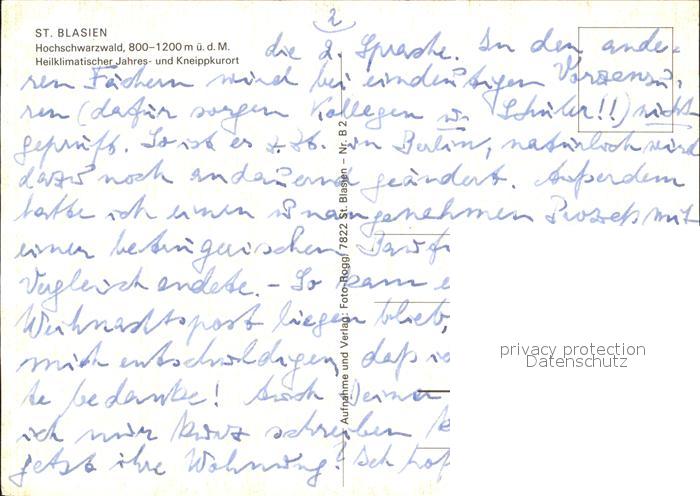 2
ST. BLASIEN
Hochschwarzwald, 800–1200 m ü. d. M.
Heilklimatischer Jahres- und Kneippkurort
die 2. Sprache. In den ande-
ren Fächern wird bei eindeutigen Vorzensu-
ren (dafür sorgen Kollegen u. Schüler!!) nicht
geprüft. So ist es z. Zt. in Berlin, natürlich wird
dazu noch andauernd geändert. Außerdem
hatte ich einen unangenehmen Prozeß mit
einer betrügerischen
Vergleich endete. – So kam
Weihnachtspost liegen blieb,
mich entschuldigen, daß
te bedanke! Auch Deiner
ich nur kurz schreiben
jetzt ihre Wohnung? Ich
Aufnahme und Verlag: Foto-Rogg, 7822 St. Blasien – Nr. B 2
privacy protection
Datenschutz